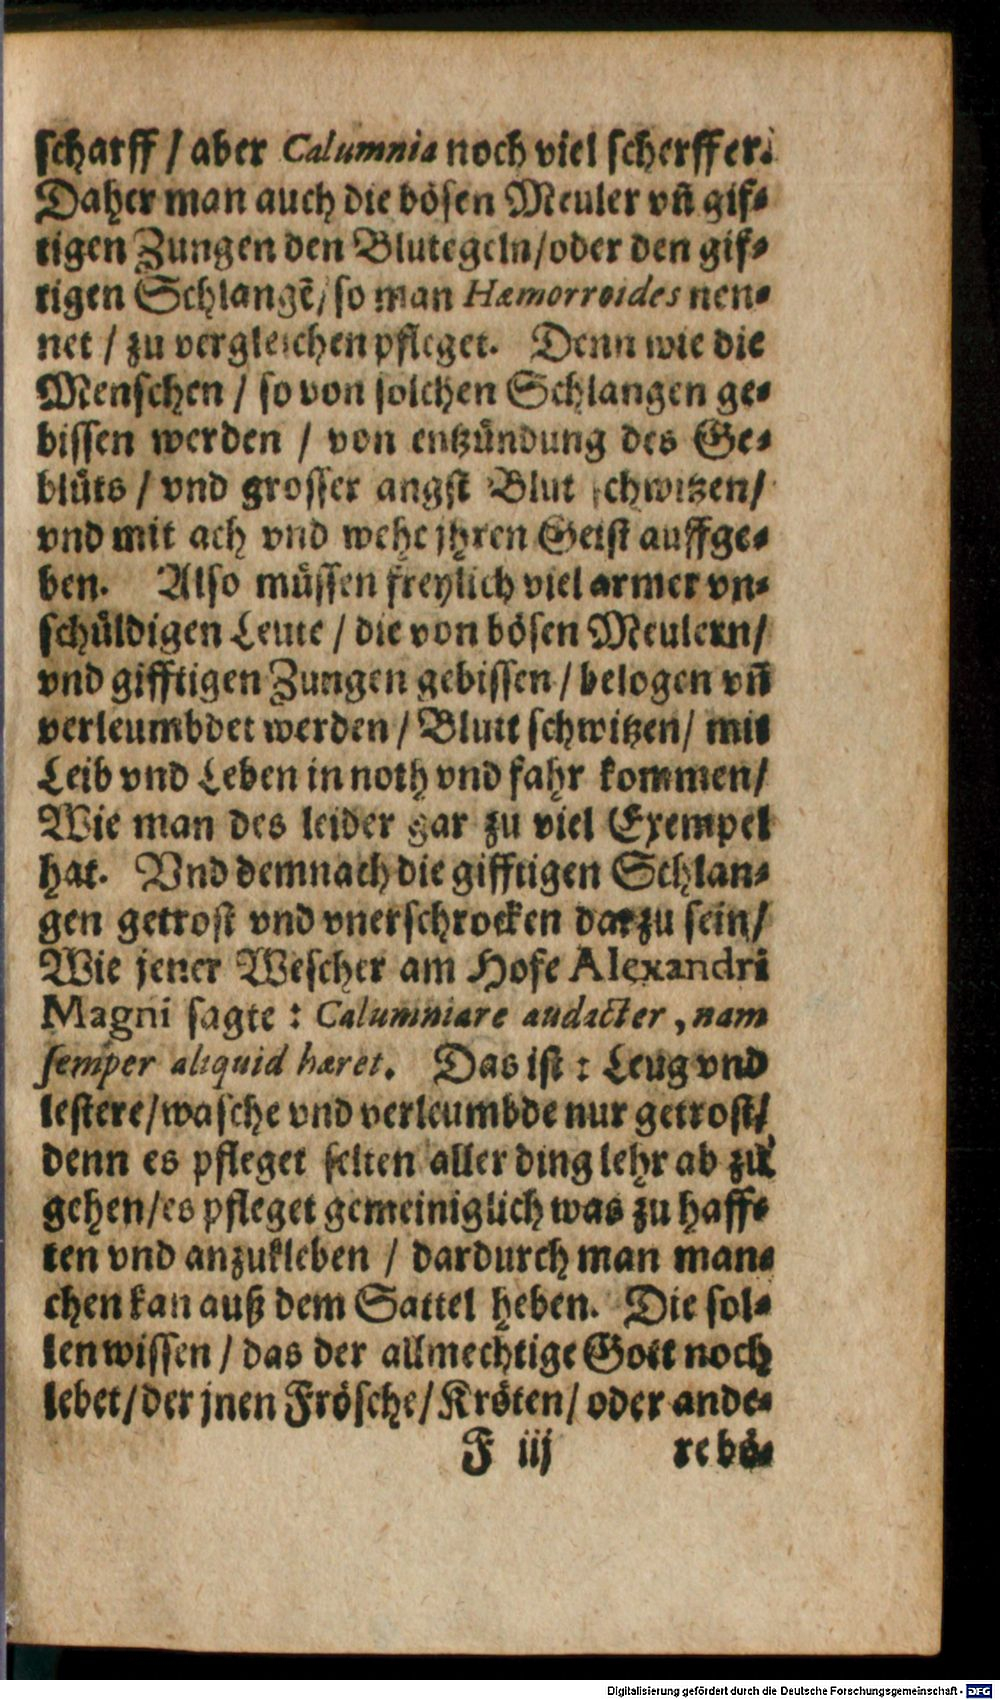 scharff / aber Calumnia noch viel scherffer.
Daher man auch die bösen Meuler vn̄ gif-
tigen Zungen den Blutegeln/oder den gif-
tigen Schlangē/ so man Hæmorroides nen-
net / zu vergleichen pfleget. Denn wie die
Menschen / so von solchen Schlangen ge-
bissen werden / von entzündung des Ge-
blüts / vnd grosser angst Blut schwitzen/
vnd mit ach vnd wehe jhren Geist auffge-
ben. Also müssen freylich viel armer vn-
schüldigen Leute / die von bösen Meulern/
vnd gifftigen Zungen gebissen / belogen vn̄
verleumbdet werden / Blutt schwitzen/ mit
Leib vnd Leben in noth vnd fahr kommen/
Wie man des leider gar zu viel Exempel
hat. Vnd demnach die gifftigen Schlan-
gen getrost vnd vnerschrocken darzu sein/
Wie jener Wescher am Hofe Alexandri
Magni sagte : Calumniare audacter, nam
semper aliquid hæret. Das ist : Leug vnd
lestere/wasche vnd verleumbde nur getrost/
denn es pfleget selten aller ding lehr ab zu
gehen/es pfleget gemeiniglich was zu haff-
ten vnd anzukleben / dardurch man man-
chen kan auß dem Sattel heben. Die sol-
len wissen / das der allmechtige Gott noch
lebet/der jnen Frösche/ Kröten/ oder ande-
F iij re bö-
Digitalisierung gefördert durch die Deutsche Forschungsgemeinschaft - DFG